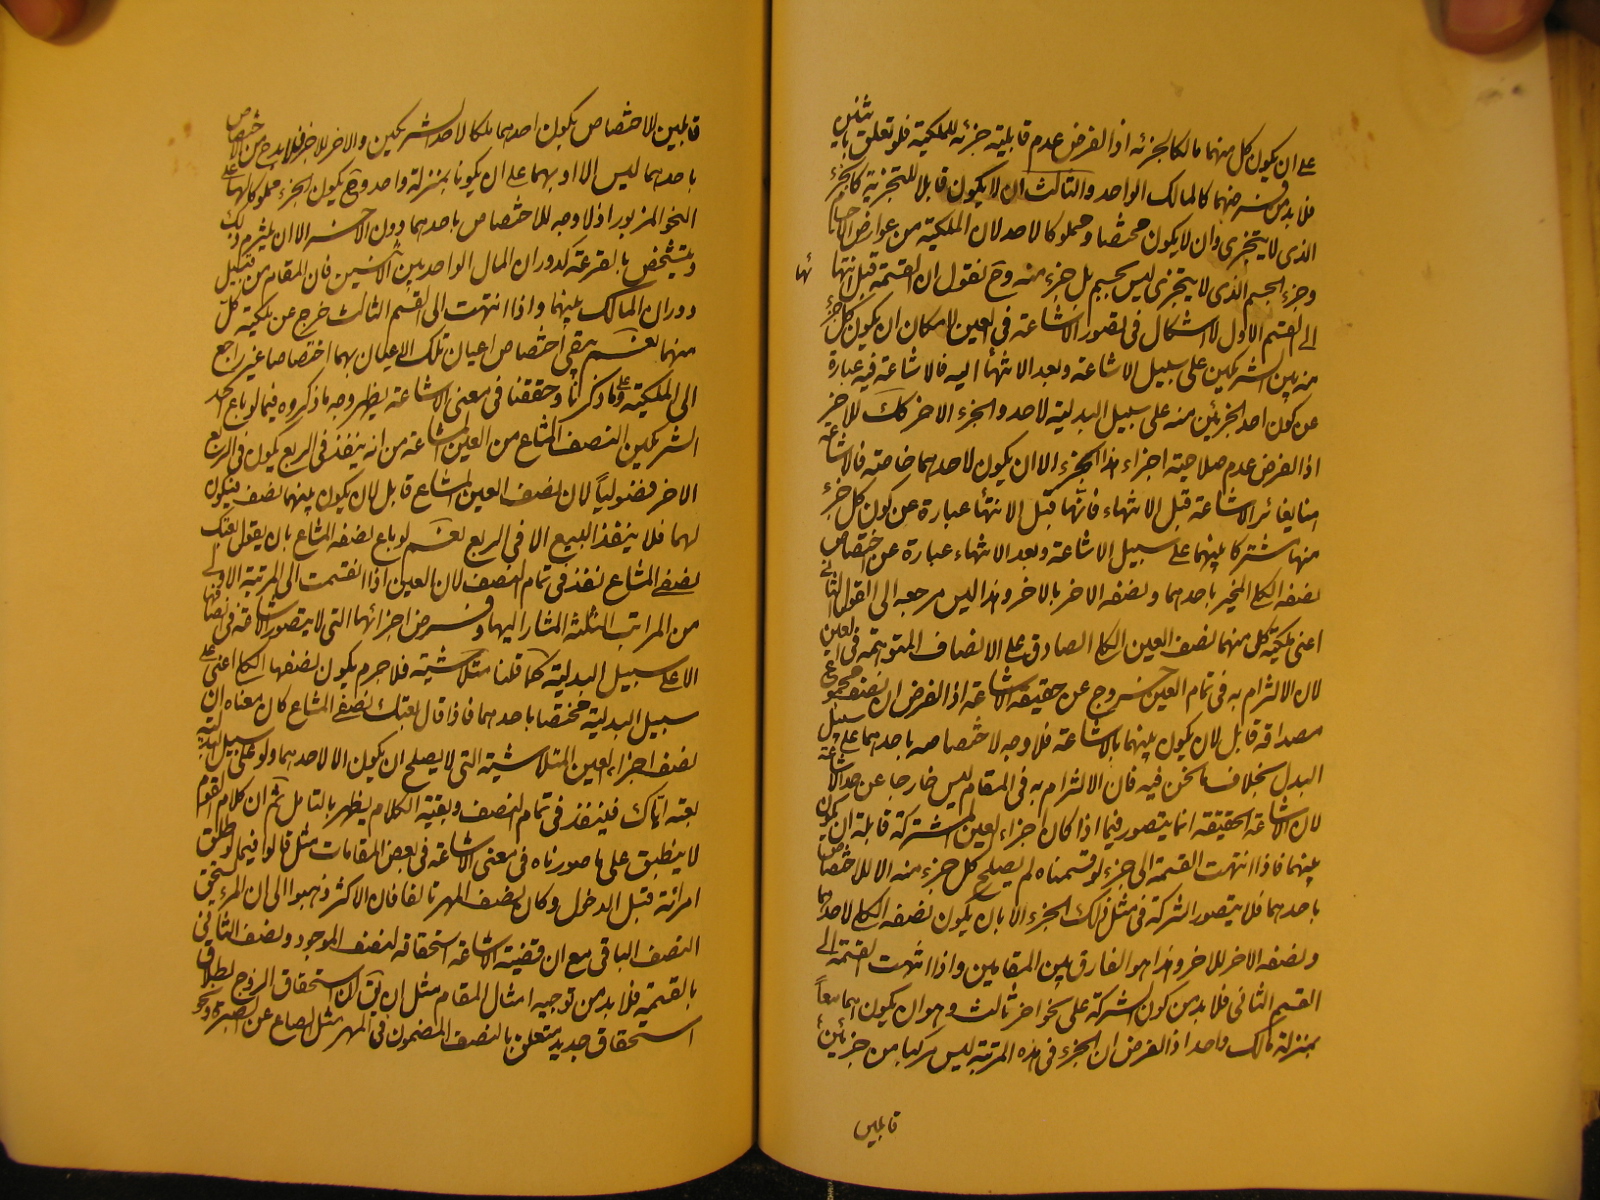 على ان يكون كل منهما مالكا لجزئه اذ الفرض عدم قابلية جزئه للملكية فلو تعلق باثنين
فلا بد من فرضهما كالمالك الواحد والثالث ان لا يكون قابلا للتجزية كالجزء
الذى لا يتجزى وان لا يكون مختصا ومملوكا لاحد لان الملكية من عوارض الاجسام
وجزء الجسم الذى لا يتجزى ليس بجسم بل جزء منه وح نقول ان القسمة قبل انتهائها
الى القسم الاول لا اشكال فى تصور الاشاعة فى العين لامكان ان يكون كل جزء
منه بين الشريكين على سبيل الاشاعة وبعد الانتهاء اليه فالاشاعة فيه عبارة
عن كون احد الجزئين منه على سبيل البدلية لاحد والجزء الاخر كك للاخر
اذ الفرض عدم صلاحية اجزاء هذا الجزء الا ان يكون لاحدهما خاصة فالاشاعة
هنا يغائر الاشاعة قبل الانتهاء فانها قبل الانتهاء عبارة عن كون كل جزء
منها مشتركا بينهما على سبيل الاشاعة وبعد الانتهاء عبارة عن اختصاص
نصفه الكلى المخير باحدهما ونصفه الاخر بالاخر وهذا ليس مرجعه الى القول الثانى
اعنى ملكية كل منهما نصف العين الكلى الصادق على الانصاف المتوهمة فى العين
لان الالتزام به فى تمام العين خروج عن حقيقة الاشاعة اذ الفرض ان نصف مجموع
مصداقه قابل لان يكون بينهما بالاشاعة فلا وجه لاختصاصه باحدهما على سبيل
البدل بخلاف ما نحن فيه فان الالتزام به فى المقام ليس خارجا عن حد الاشاعة
لان الاشاعة الحقيقة انما يتصور فيما اذا كان اجزاء العين المشتركة قابلة ان يكون
بينهما فاذا انتهت القسمة الى جزء لو قسمناه لم يصلح كل جزء منه الا للاختصاص
باحدهما فلا يتصور الشركة فى مثل ذلك الجزء الا بان يكون نصفه الكلى لاحدهما
ونصفه الاخر للاخر وهذا هو الفارق بين المقامين واذا انتهت القسمة الى
القسم الثانى فلا بد من كون الشركة على نحو اخر ثالث وهو ان يكون هما معاً
بمنزلة مالك واحد اذ الفرض ان الجزء فى هذه المرتبة ليس مركبا من جزئين
قابلين
قابلين للاختصاص يكون احدهما ملكا لاحد الشريكين والاخر للاخر فلا بد ح من الاختصاص
باحدهما ليس الا اوبهما على ان يكونا بمنزلة واحد وح يكون الجزء مملوكا لهما على
النحو المزبور اذ لا وجه للاختصاص باحدهما دون الاخر الا ان يلتزم ذلك
ويتشخص بالقرعة كدوران المال الواحد بين الاثنين فان المقام من قبيل
دوران المالك بينهما واذا انتهت الى القسم الثالث خرج عن ملكية كل
منهما نعم يبقى اختصاص اعيان تلك الاعيان بهما اختصاصا غير راجع
الى الملكية وعلى ما ذكرنا وحققنا فى معنى الاشاعة يظهر وجه ما ذكروه فيما لو باع احد
الشريكين النصف المشاع من العين المشاعة من انه ينفذ فى الربع يكون فى الربع
الاخر فضولياً لان نصف العين المشاع قابل لان يكون بينهما نصف فيكون
لهما فلا ينفذ البيع الا فى الربع نعم لو باع نصفه المشاع بان يقول بعتك
نصفى المشاع نفذ فى تمام النصف لان العين اذا انقسمت الى المرتبة الاولى
من المراتب الثلثة المشار اليها وفرض اجزائها التى لا يتصور الاشاعة فى نصفها
الا على سبيل البدلية كما قلنا متلاشية فلا جرم يكون نصفها الكلى اعنى على
سبيل البدلية مختصا باحدهما فاذا قال بعتك نصفى المشاع كان معناه ان
نصف اجزاء العين المتلاشية التى لا يصلح ان يكون الا لاحدهما ولو على سبيل البدلية
بعته اياك فينفذ فى تمام النصف وبقية الكلام يظهر بالتامل ثم ان كلام القوم
لا ينطبق على ما صورناه فى معنى الاشاعة فى بعض المقامات مثل ما قالوا فيما لو طلق
امرائة قبل الدخول وكان نصف المهر تالفا فان الاكثر ذهبوا الى ان المرء يستحق
النصف الباقى مع ان قضية الاشاعة استحقاقه لنصف الموجود ونصف الثانى
بالقسمة فلا بد من توجيه امثال المقام مثل ان يق ان استحقاق الزوج بطلاق
استحقاق جديد متعلق بالنصف المضمون فى المهر مثل الصاع عن الصبرة ونحو